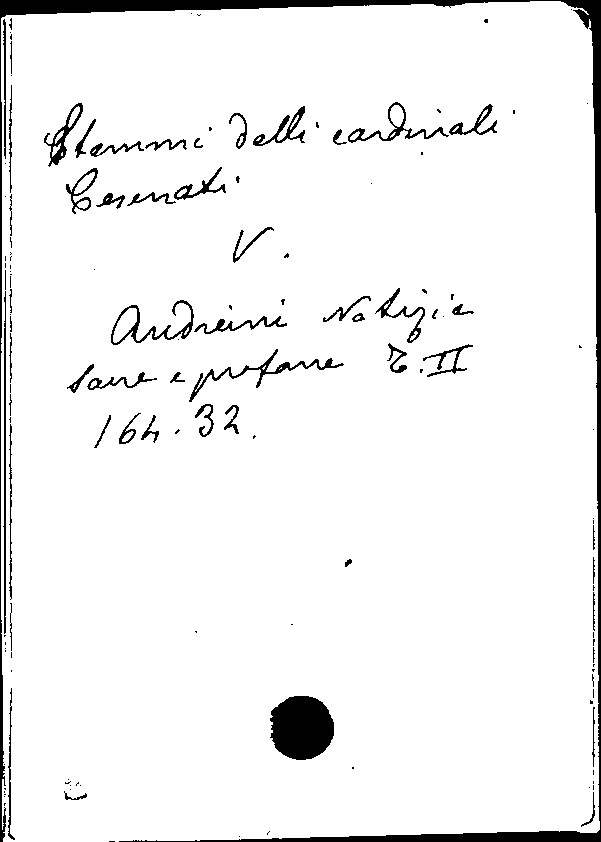 Stemmi delli cardinali
Cesenati
V.
Andreini Notizie
sacre e profane T. II
164.32.